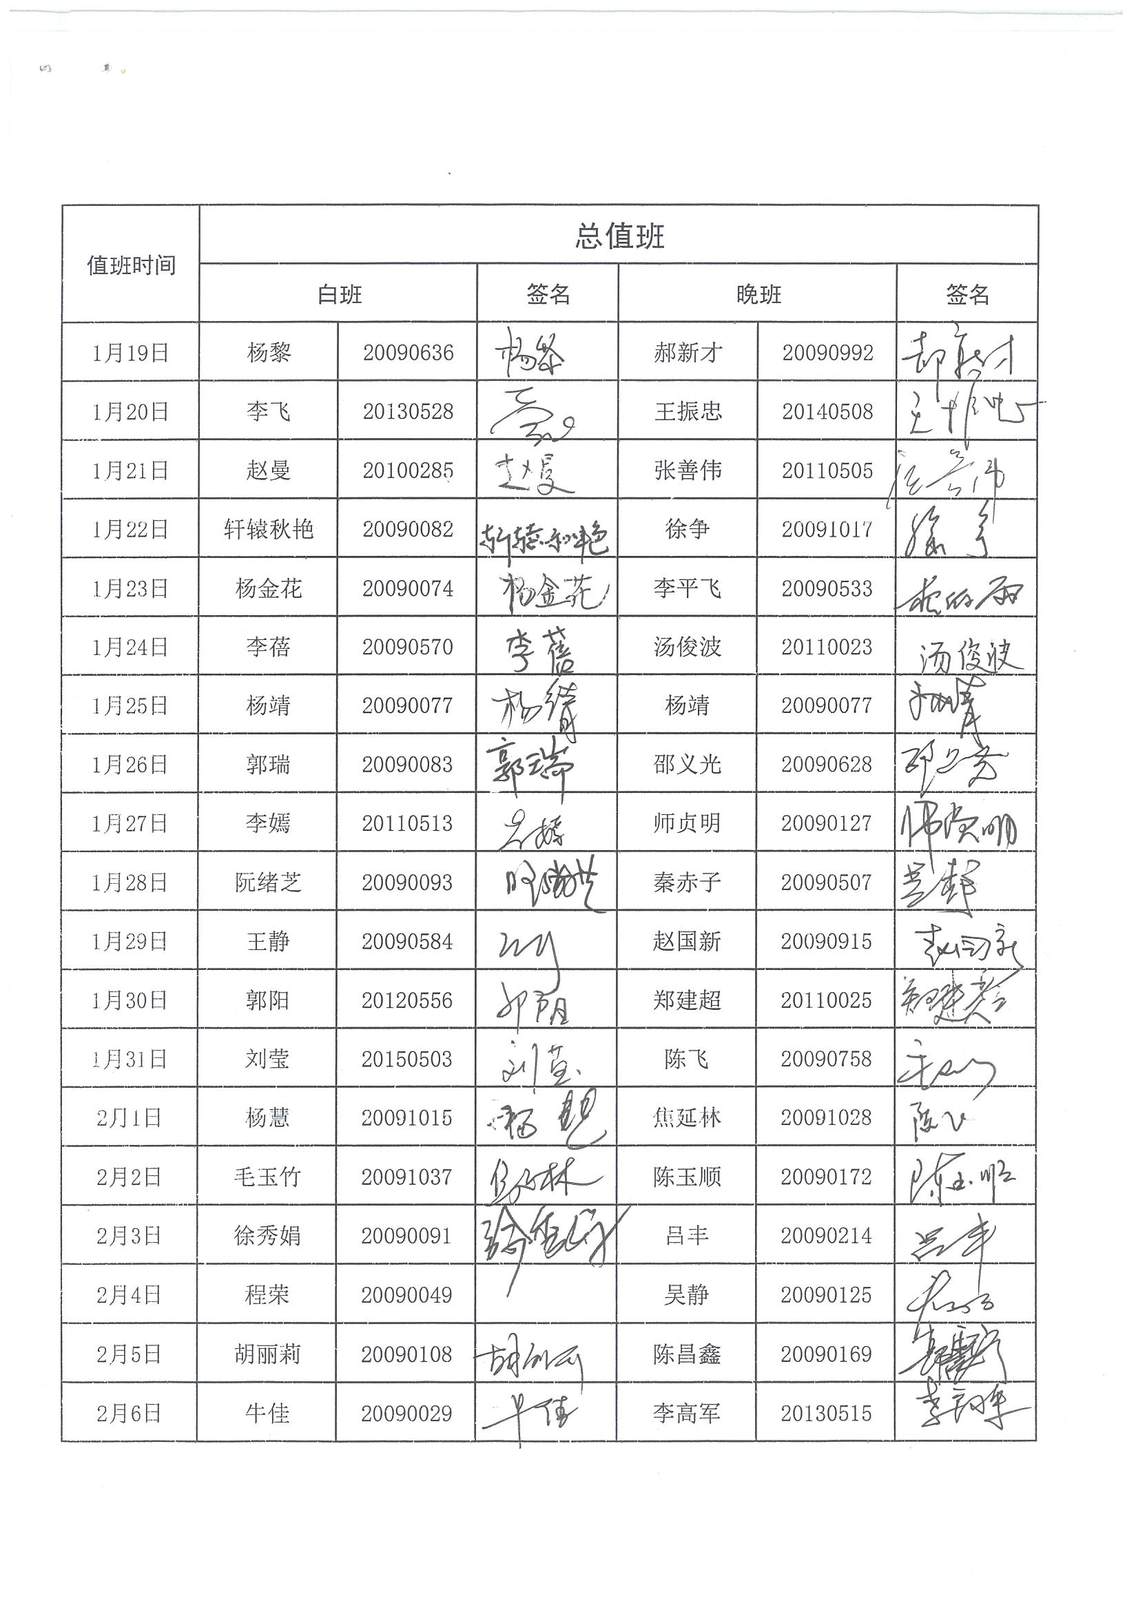 总值班
值班时间
白班 签名 晚班 签名
1月19日 杨黎 20090636 杨黎 郝新才 20090992 郝新才
1月20日 李飞 20130528 王振忠 20140508 王振忠
1月21日 赵曼 20100285 赵曼 张善伟 20110505
1月22日 轩辕秋艳 20090082 轩辕秋艳 徐争 20091017 徐争
1月23日 杨金花 20090074 杨金花 李平飞 20090533
1月24日 李蓓 20090570 李蓓 汤俊波 20110023 汤俊波
1月25日 杨靖 20090077 杨靖 杨靖 20090077 杨靖
1月26日 郭瑞 20090083 郭瑞 邵义光 20090628
1月27日 李嫣 20110513 师贞明 20090127 师贞明
1月28日 阮绪芝 20090093 秦赤子 20090507
1月29日 王静 20090584 赵国新 20090915 赵国新
1月30日 郭阳 20120556 郑建超 20110025 郑建超
1月31日 刘莹 20150503 刘莹 陈飞 20090758
2月1日 杨慧 20091015 焦延林 20091028 陈飞
2月2日 毛玉竹 20091037 陈玉顺 20090172 陈玉顺
2月3日 徐秀娟 20090091 吕丰 20090214 吕丰
2月4日 程荣 20090049 吴静 20090125
2月5日 胡丽莉 20090108 陈昌鑫 20090169
2月6日 牛佳 20090029 牛佳 李高军 20130515